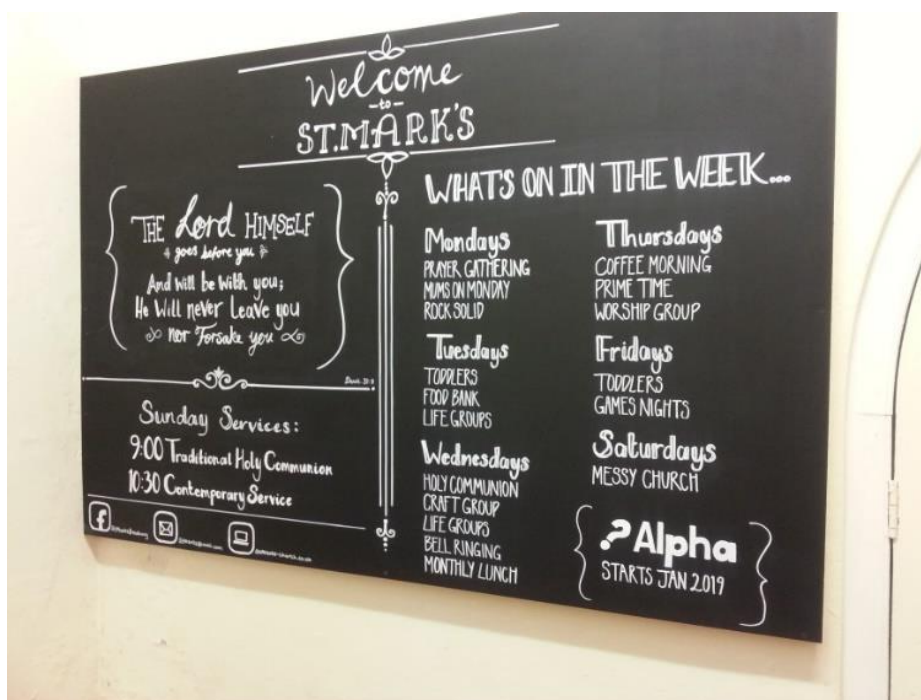 Welcome
to
ST.MARK'S
THE Lord HIMSELF
goes before you
And will be with you;
He Will never Leave you
nor Forsake you
Sunday Services:
9:00 Traditional Holy Communion
10:30 Contemporary Service
f
WHAT'S ON IN THE WEEK...
Mondays
PRAYER GATHERING
MUMS ON MONDAY
ROCK SOLID
Tuesdays
TODDLERS
FOOD BANK
LIFE GROUPS
Wednesdays
HOLY COMMUNION
CRAFT GROUP
LIFE GROUPS
BELL RINGING
MONTHLY LUNCH
Thursdays
COFFEE MORNING
PRIME TIME
WORSHIP GROUP
Fridays
TODDLERS
GAMES NIGHTS
Saturdays
MESSY CHURCH
? Alpha
STARTS JAN 2019